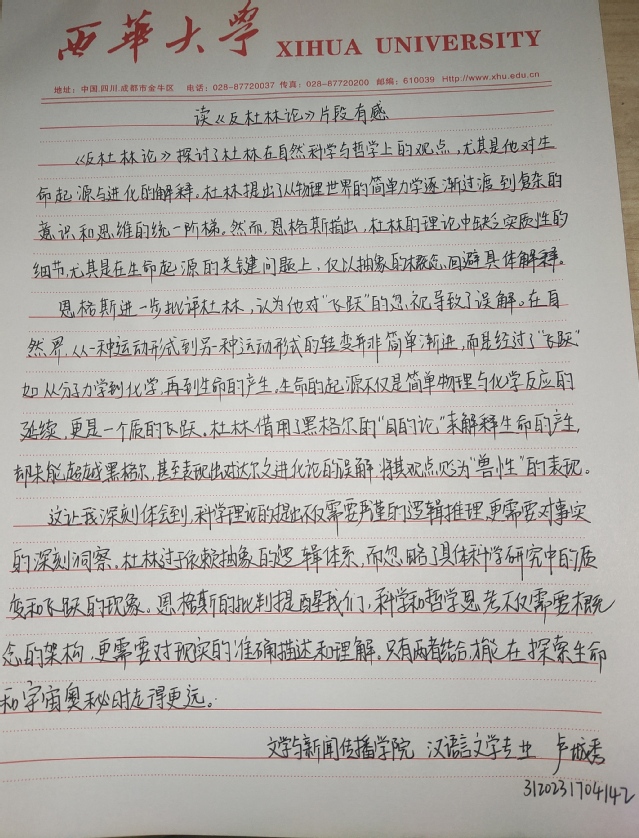 西華大學 XIHUA UNIVERSITY
地址：中国.四川.成都市金牛区 电话：028-87720037 传真：028-87720200 邮编：610039 Http://www.xhu.edu.cn
读《反杜林论》片段有感
《反杜林论》探讨了杜林在自然科学与哲学上的观点，尤其是他对生
命起源与进化的解释。杜林提出了从物理世界的简单力学逐渐过渡到复杂的
意识和思维的统一阶梯。然而，恩格斯指出，杜林的理论中缺乏实质性的
细节，尤其是在生命起源的关键问题上，仅以抽象的概念回避具体解释。
恩格斯进一步批评杜林，认为他对“飞跃”的忽视导致了误解。在自
然界，从一种运动形式到另一种运动形式的转变并非简单渐进，而是经过了“飞跃”
如从分子力学到化学，再到生命的产生。生命的起源不仅是简单物理与化学反应的
延续，更是一个质的飞跃。杜林借用了黑格尔的“目的论”来解释生命的产生，
却未能超越黑格尔，甚至表现出对达尔文进化论的误解，将其观点贬为“兽性”的表现。
这让我深刻体会到，科学理论的提出不仅需要严谨的逻辑推理，更需要对事实
的深刻洞察。杜林过于依赖抽象的逻辑体系，而忽略了具体科学研究中的质
变和飞跃的现象。恩格斯的批判提醒我们，科学和哲学思考不仅需要概
念的架构，更需要对现实的准确描述和理解。只有两者结合，才能在探索生命
和宇宙奥秘时走得更远。
文学与新闻传播学院 汉语言文学专业 卢城秀
3120231704142